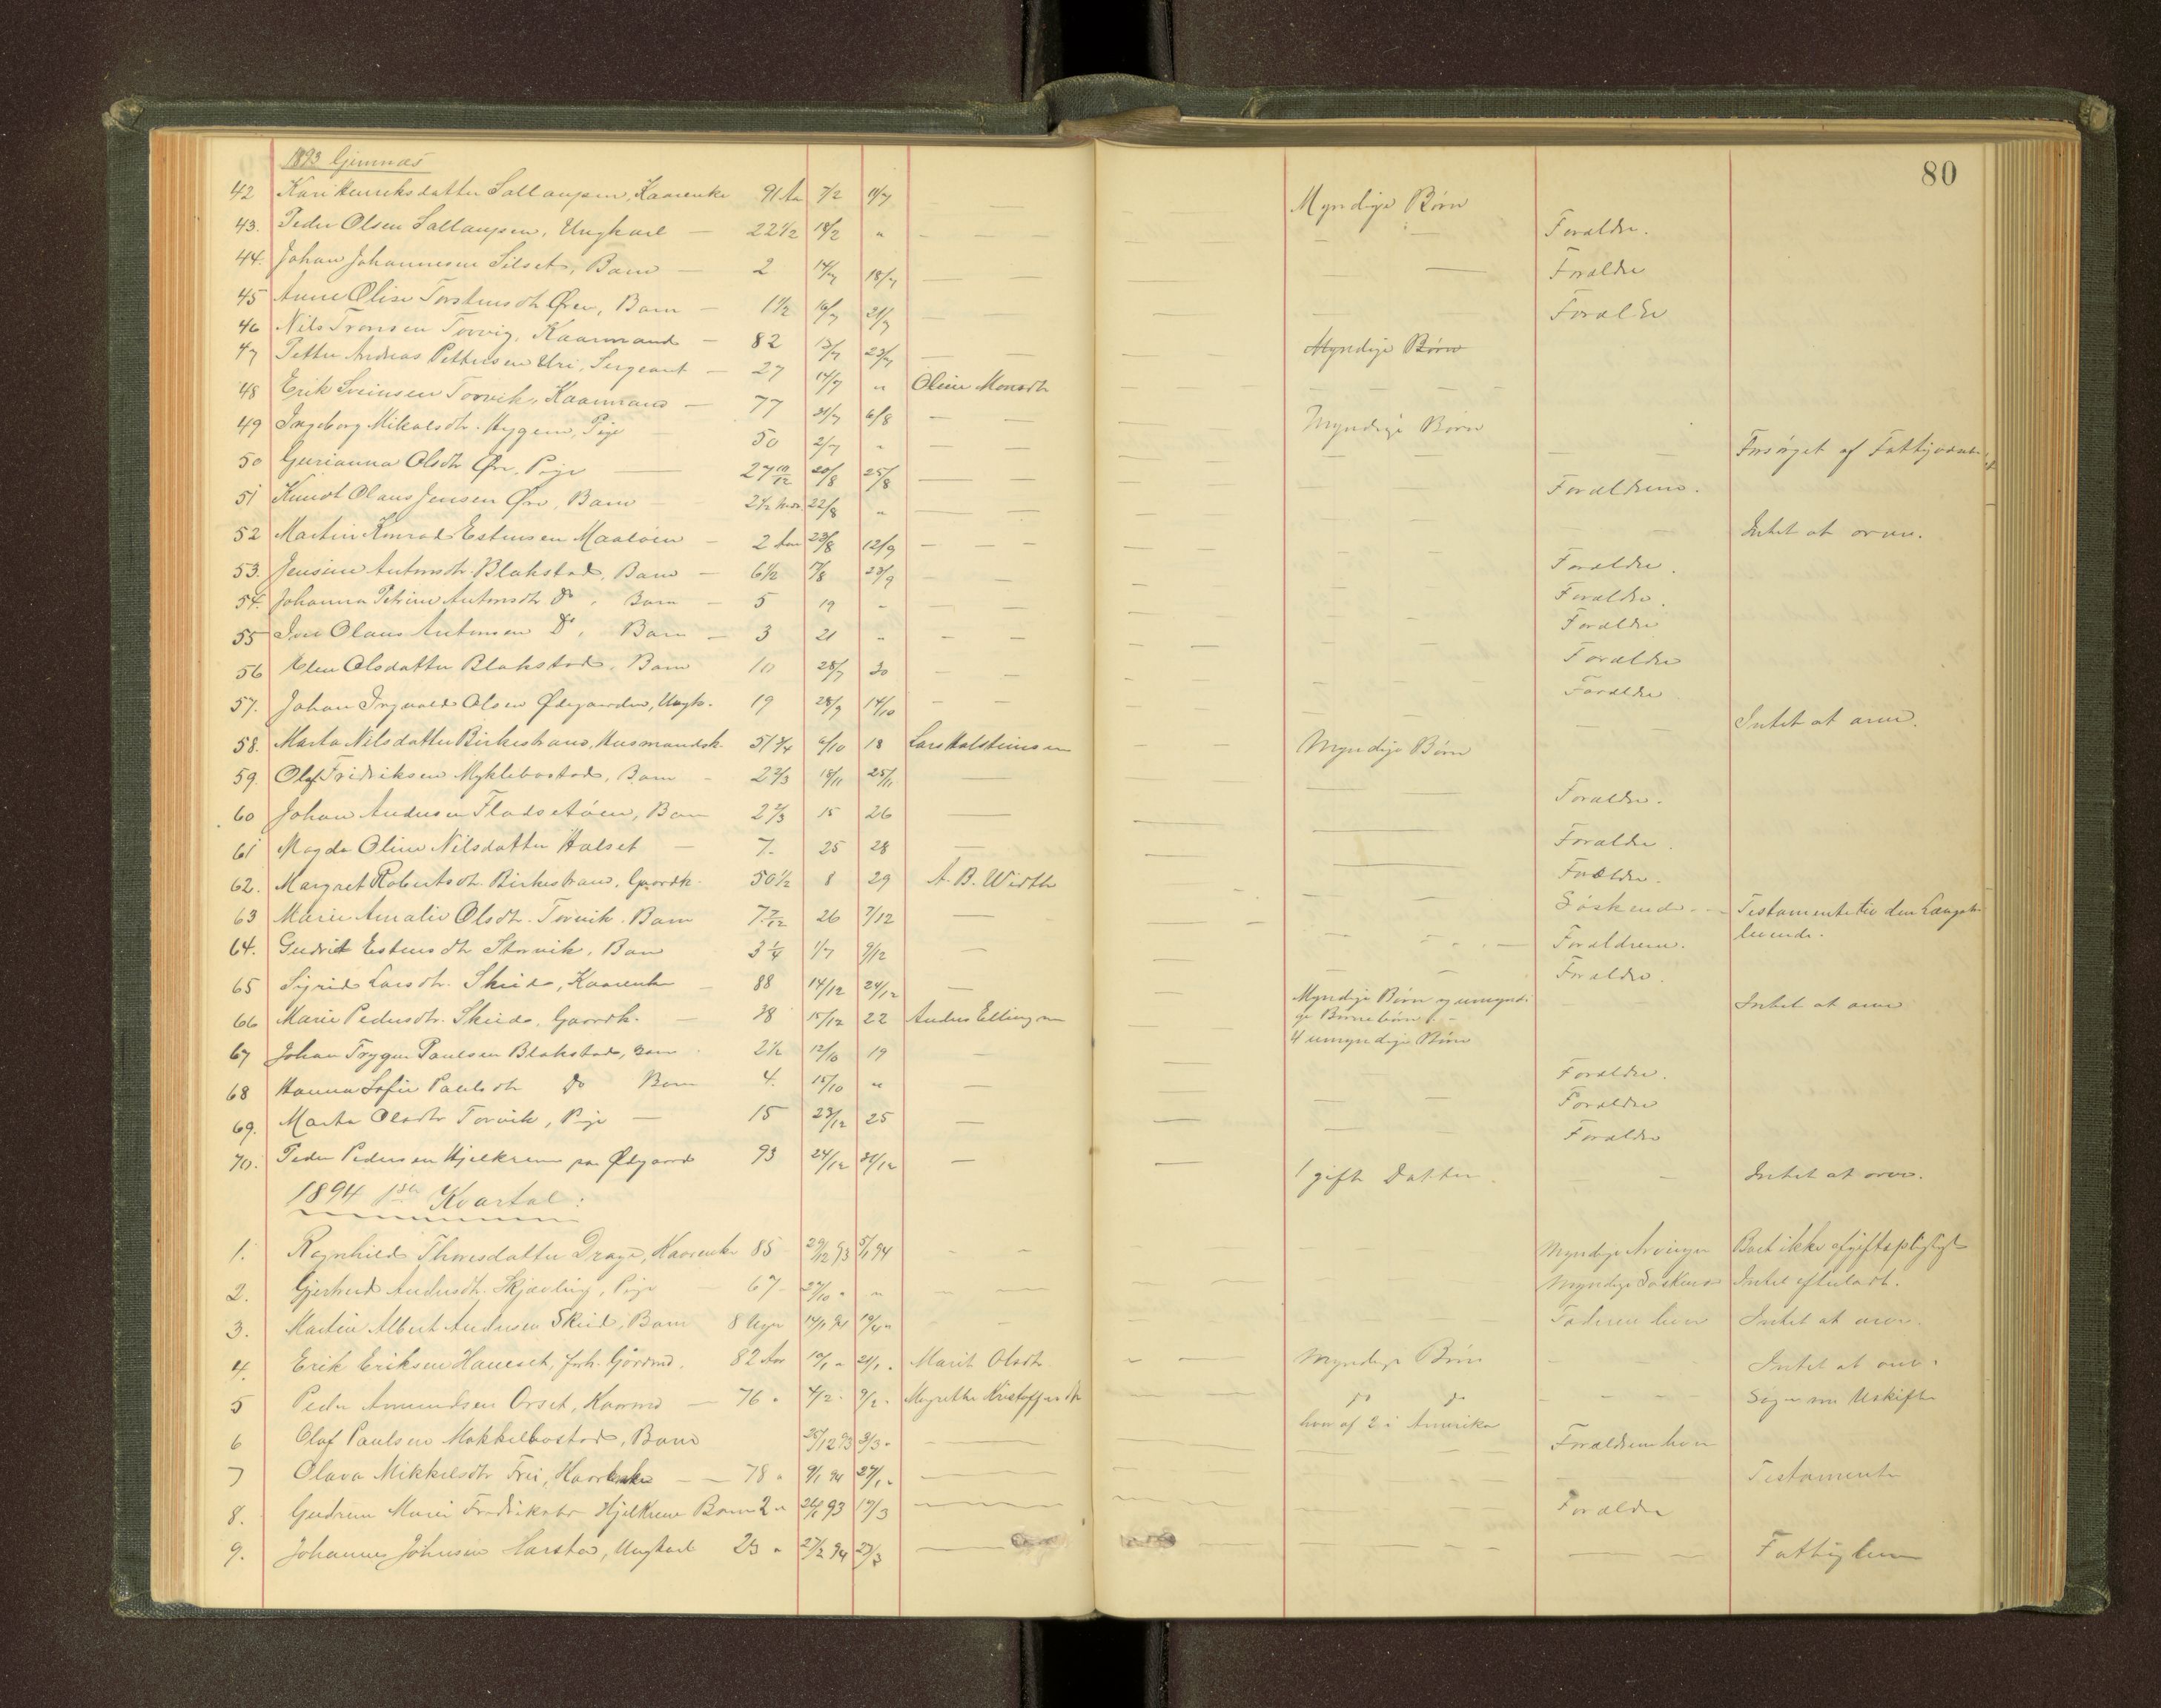 80
1893 Gimnæs
42 Kari Henriksdatter Sallaupsen, Kaarenke 91 Aar 7/2 11/7 — — — Myndige Børn
43. Peder Olsen Sallaupsen, Ungkarl — 22 1/2 18/2 " — — — Forældre.
44. Johan Johannesen Silset, Barn — 2 14/7 18/7 — — — Forældre
45 Anne Olise Torstensdtr Øre, Barn — 1 1/2 16/7 21/7 — — — Forældre
46 Nils Tronsen Torvig, Kaarmand — 82 13/7 23/7 — — — Myndige Børn
47 Petter Andreas Pettersen Uri, Sergeant — 27 14/7 " Oline Monsdtr — — —
48 Erik Sveinsen Torvik, Kaarmand — 77 31/7 6/8 — — Myndige Børn
49 Ingeborg Mikalsdtr. Hygen, Pige 50 2/7 " — — — — — Forsørget af Fattigvæsenet
50 Gurianna Olsdtr Øre, Pige — 27 10/12 20/8 25/8 — — — Forældrene.
51 Knudt Olaus Jensen Øre, Barn — 2 1/2 Mdr. 22/8 " — — — — Intet at arve.
52 Martin Konrad Estensen Maaløen — 2 Aar 23/8 12/9 — — — Forældre.
53. Jensine Antonsdtr. Blakstad, Barn — 6 1/2 17/8 23/9 — — — Forældre.
54. Johanna Petrine Antonsdtr Do, Barn — 5 19 " — — — Forældre
55 Iver Olaus Antonsen Do, Barn — 3 21 " — — — Forældre
56 Elen Olsdatter Blakstad, Barn 10 28/7 30 — — — Forældre
57. Johan Ingvald Olsen Ødegaarden, Ungk. 19 28/9 14/10 — — — — Intet at arve.
58. Marta Nilsdatter Birkestrand, Husmandsk. 51 3/4 6/10 18 Lars Halsteinsen — — Myndige Børn
59. Olaf Fridriksen Myklebostad, Barn - 2 2/3 18/11 25/11 — — — Forældre.
60 Johan Andersen Fladsetøen, Barn 2 2/3 15 26 — — — Forældre.
61 Magda Oline Nilsdatter Halset — 7. 25 28 — — — Forældre.
62. Margret Robertsdtr. Birkestrand, Gaardk. 50 1/2 8 29 A. B. Width — — — Søskende. — Testamente til den Længst-
levende.
63 Marie Amalie Olsdtr. Torvik. Barn 7 7/12 26 7/12 — — — Forældrene.
64. Gudrid Estensdtr Storvik, Barn 3 1/4 1/7 9/12 — — — Forældre.
65 Sigrid Larsdtr. Skeid, Kaarenke — 88 14/12 24/12 — — Myndige Børn og umyndi-
ge Børnebørn. — — Intet at arve
66 Marie Pedersdtr. Skeide, Gaardk. — 38 15/12 22 Anders Ellingsen — 4 umyndige Børn
67 Johan Trygve Paulsen Blakstad, Barn 2 1/2 12/10 19 — — — Forældre.
68 Hanna Sofie Paulsdtr Do Barn 4. 15/10 " — — — Forældre
69. Marta Olsdtr Torvik, Pige — 15 23/12 25 — — — Forældre
70. Peder Pedersen Hjelkrem paa Ødegaard 93 24/12 31/12 — — 1 gift Datter. — — Intet at arve.
1894 1ste Kvartal:
1. Ragnhild Thoresdatter Drage, Kaarenke 85 29/12 93 5/1 94 — — Myndige Arvinger Boet ikke afgiftspligtigt
2. Gjertrud Andersdtr. Skjævling, Pige — 67 — 27/10 " " — — Myndige Søskende Intet efterladt.
3. Martin Albert Andersen Skeid, Barn 8 Uger 14/1 94 19/4 " — — Faderen lever Intet at arve.
4. Erik Eriksen Haneset, forh. Gårdmd. 82 Aar 10/1 " 21/1 " Marit Olsdtr. — — Myndige Børn — Intet at arve.
5 Peder Amundsen Orset, Kaarmd — 76 " 4/2 " 9/2 " Magrethe Kristoffersdtr — — do do — — — Søger om Uskifte
hvor af 2 i Amerika
6 Olaf Paulsen Mokkelbostad, Barn 25/12 93 3/3 " — — — Forældrene lever
7 Olava Mikkelsdtr Frei, Kaarenke — — 78 " 9/1 94 27/1 " — — Testamente
8. Gudrun Marie Fredriksdtr Hjelkrem Barn 2 " 26/1 93 17/3 — — — Forældre
9. Johannes Johnsen Harstad, Ungkarl 23 " 27/2 94 27/3 — — — — Fattiglem